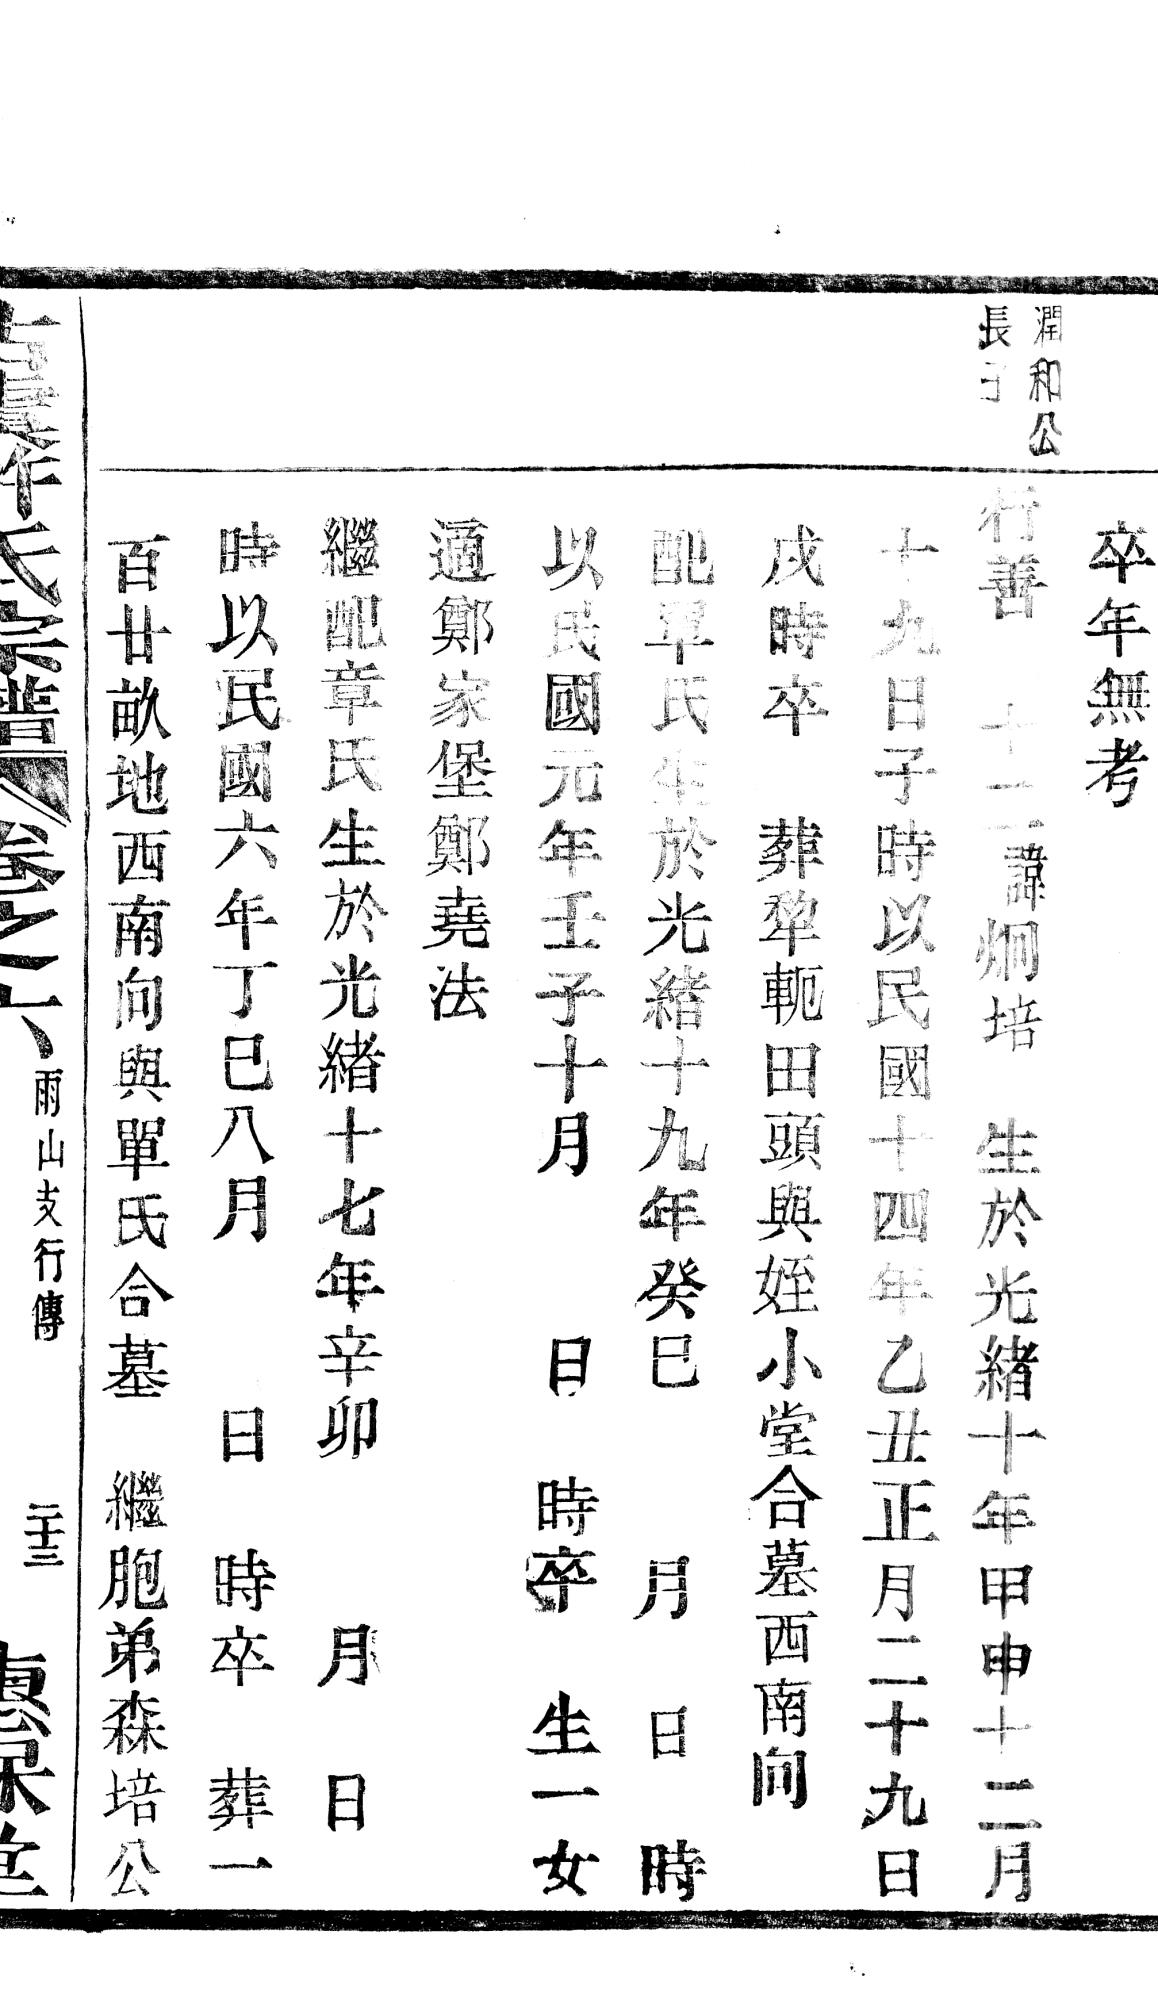 卒年無考
潤和公
長子
行善 十二 諱炯培 生於光緒十年甲申十二月
十九日子時以民國十四年乙丑正月二十九日
戌時卒 葬犂軛田頭與姪小堂合墓西南向
配單氏生於光緒十九年癸巳 月 日 時
以民國元年壬子十月 日 時卒 生一女
適鄭家堡鄭堯法
繼配章氏生於光緒十七年辛卯 月 日
時以民國六年丁巳八月 日 時卒 葬一
百廿畝地西南向與單氏合墓 繼胞弟森培公
氏宗譜 卷之六 雨山支行傳 二十三